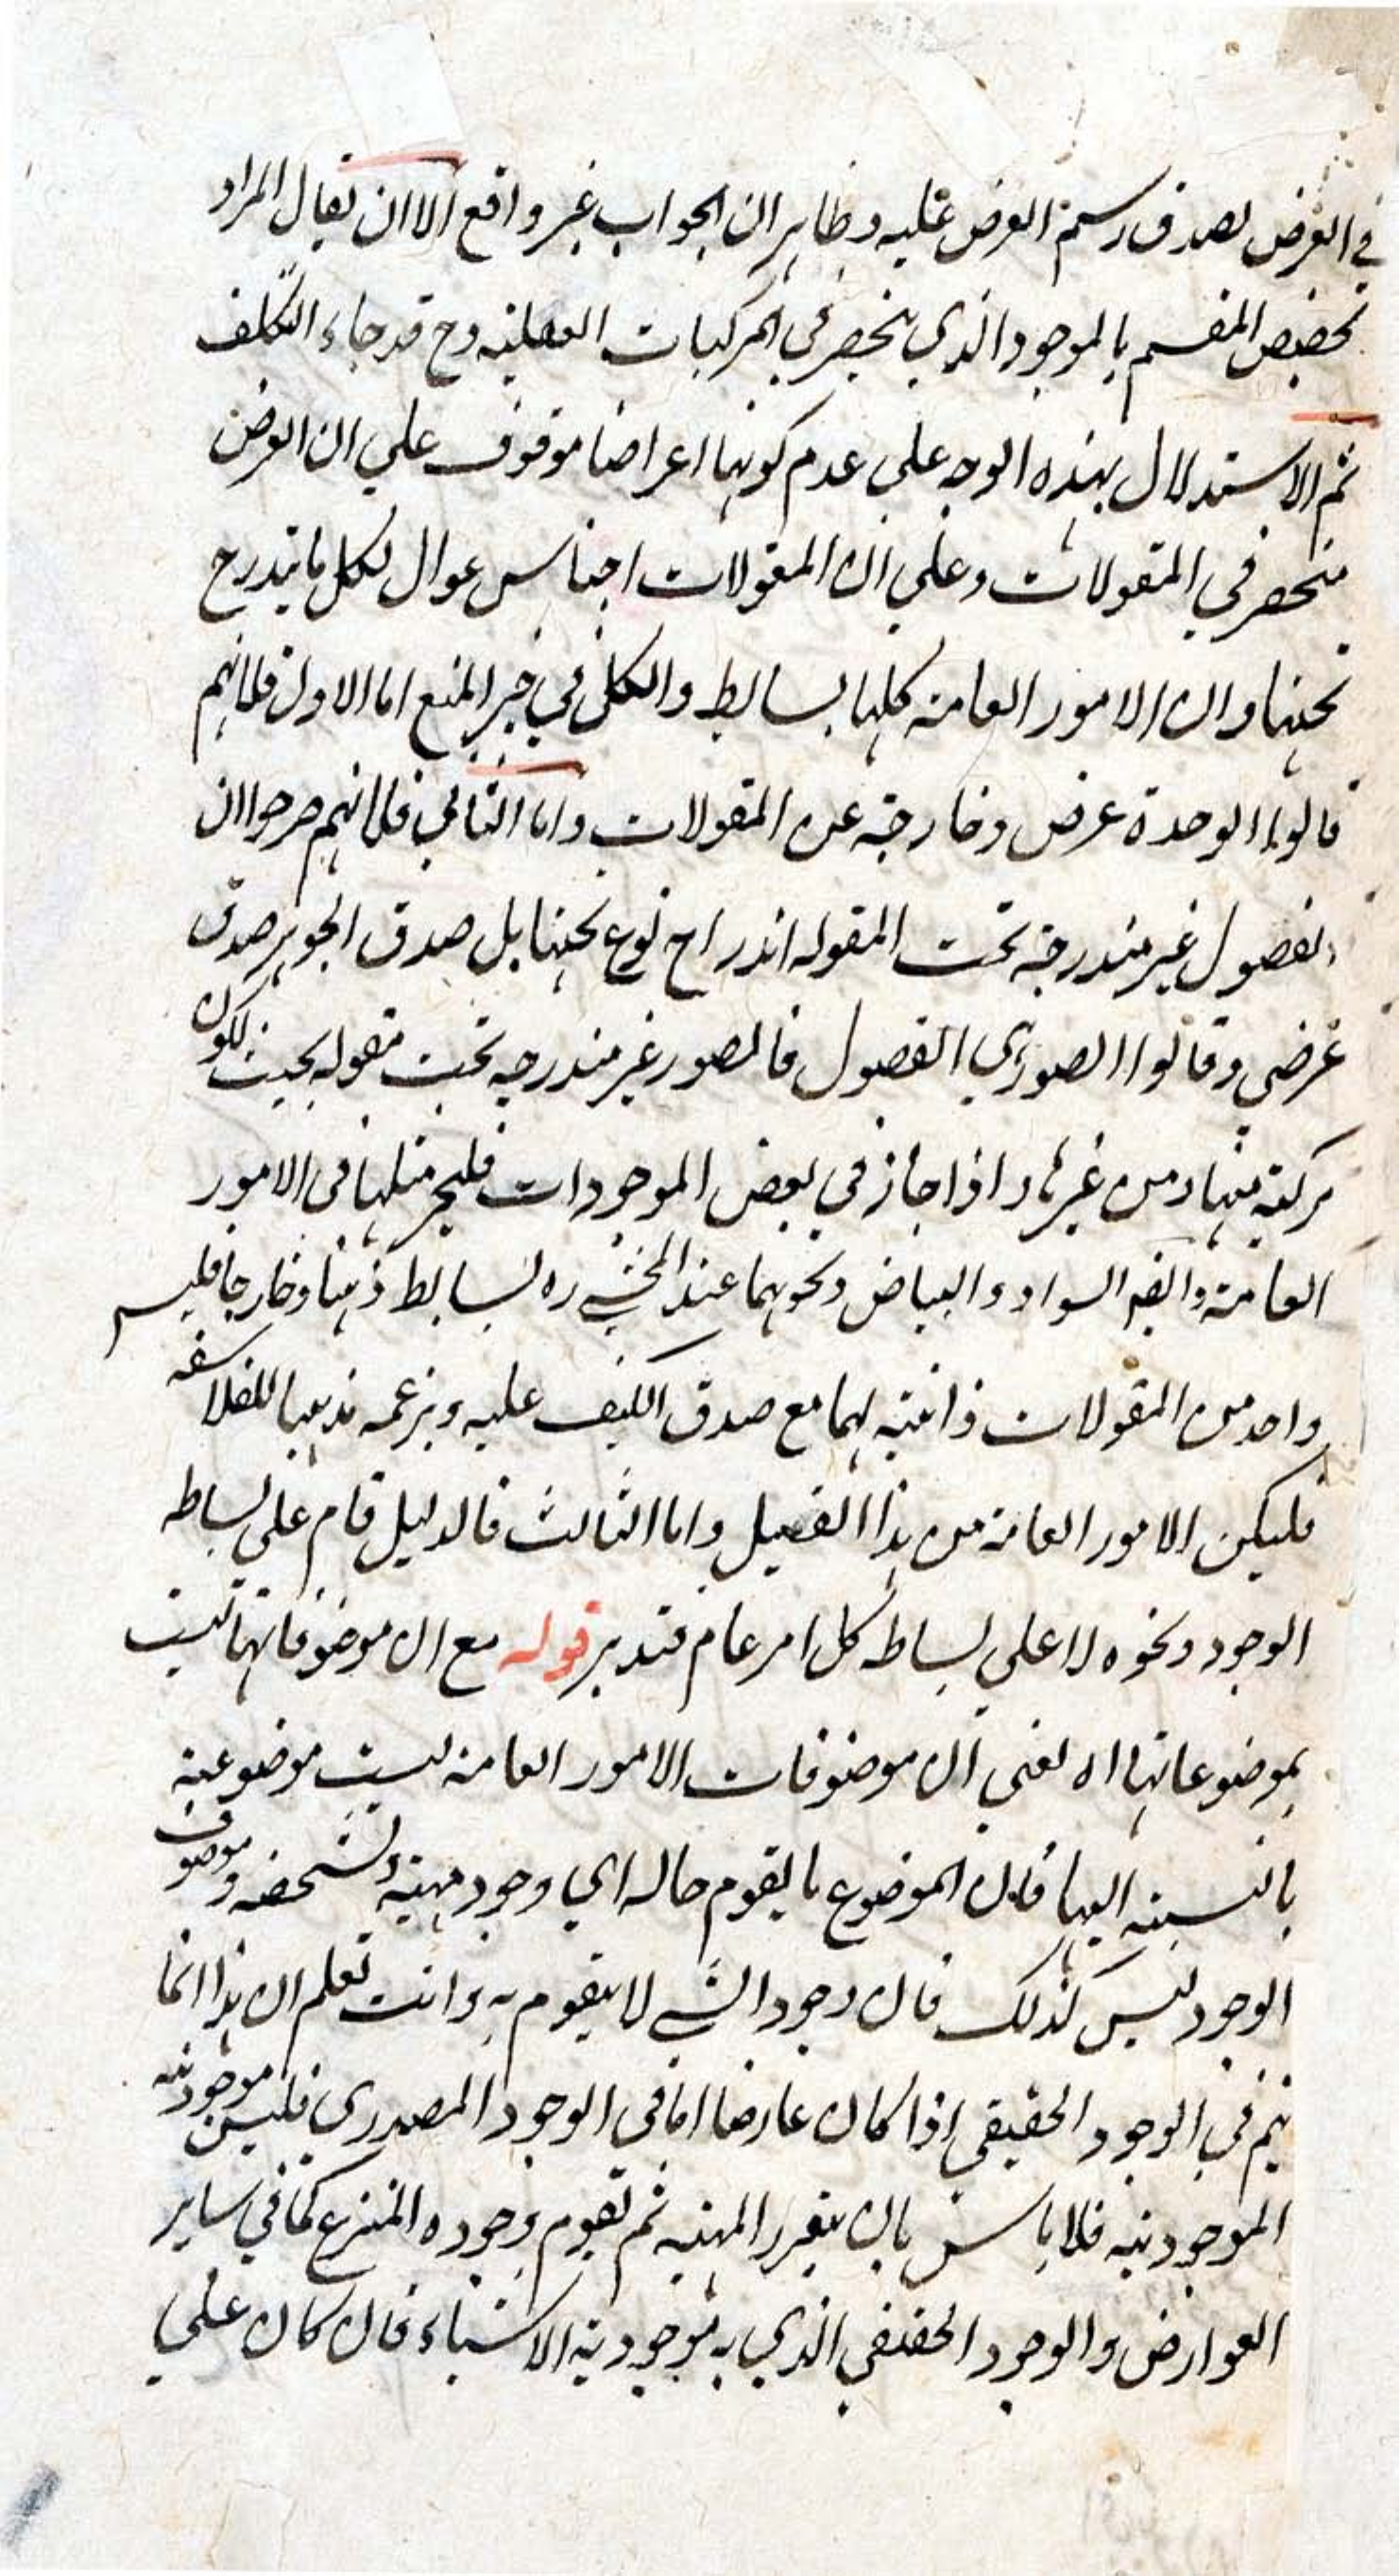 في العرض لصدق رسم العرض عليه وظاهر ان الجواب غير واقع الا ان يقال المراد
تخصيص المقسم بالموجود الذي ينحصر في المركبات العقلية وح قد جاء التكلف
ثم الاستدلال بهذه الوجه علي عدم كونها اعراضا موقوف علي ان العرض
منحصر في المقولات وعلي ان المقولات اجناس عوال لكل ما يندرج
تحتها وان الامور العامة كلها بسايط والكل في حيز المنع اما الاول فلانهم
قالوا الوحدة عرض وخارجة عن المقولات واما الثاني فلانهم صرحوا ان
الفصول غير مندرجة تحت المقوله اندراج نوع تحتها بل صدق الجوهر صدق
عرضي وقالوا الصور هي الفصول فالصور غير مندرجه تحت مقوله بحيث يكون
مركبة منها ومن غيرها واذا جاز في بعض الموجودات فليجز مثلها في الامور
العامة وايضا السواد والبياض ونحوهما عند المحشي ره بسايط ذهنا وخارجا فليس
واحد من المقولات ذاتية لهما مع صدق الكيف عليه وبزعمه مذهبا للفلاسفه
فليكن الامور العامة من هذا القبيل واما الثالث فالدليل قام علي بساطه
الوجود ونحوه لا علي بساطه كل امر عام فتدبر قوله مع ان موضوفاتها ليست
بموضوعاتها اه يعني ان موضوفات الامور العامة ليست موضوعية
بالنسبة اليها فان الموضوع ما يقوم حاله اي وجود مهيته وتشخصه وموصوف
الوجود ليس كذلك فان وجود الشي لا يتقوم به وانت تعلم ان هذا انما
يتم في الوجود الحقيقي اذا كان عارضا اما في الوجود المصدري فليس موجودية
الموجودية فلا باس بان يتقرر المهية ثم تقوم وجوده المنتزع كما في ساير
العوارض والوجود الحقيقي الذي به موجودية الاشياء فان كان علي